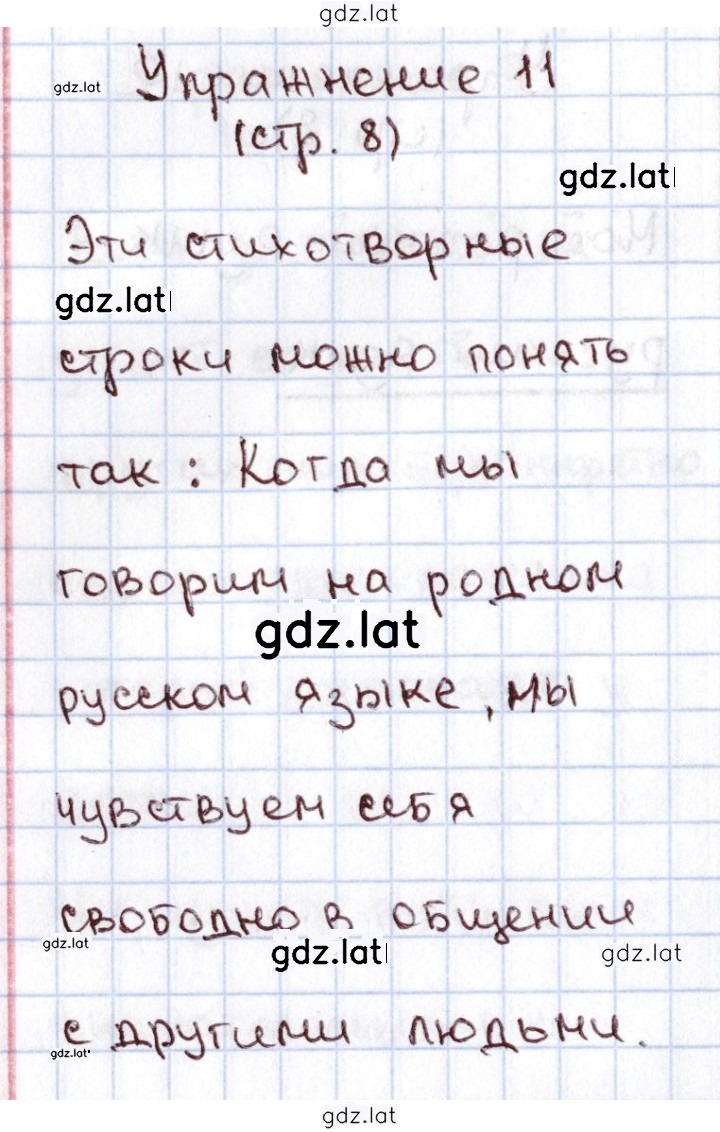 gdz.lat
gdz.lat
Упражнение 11
(стр. 8)
gdz.lat
Эти стихотворные
gdz.lat
строки можно понять
так: Когда мы
говорим на родном
gdz.lat
русском языке, мы
чувствуем себя
свободно в общении
gdz.lat
gdz.lat
gdz.lat
с другими людьми.
gdz.lat
gdz.lat